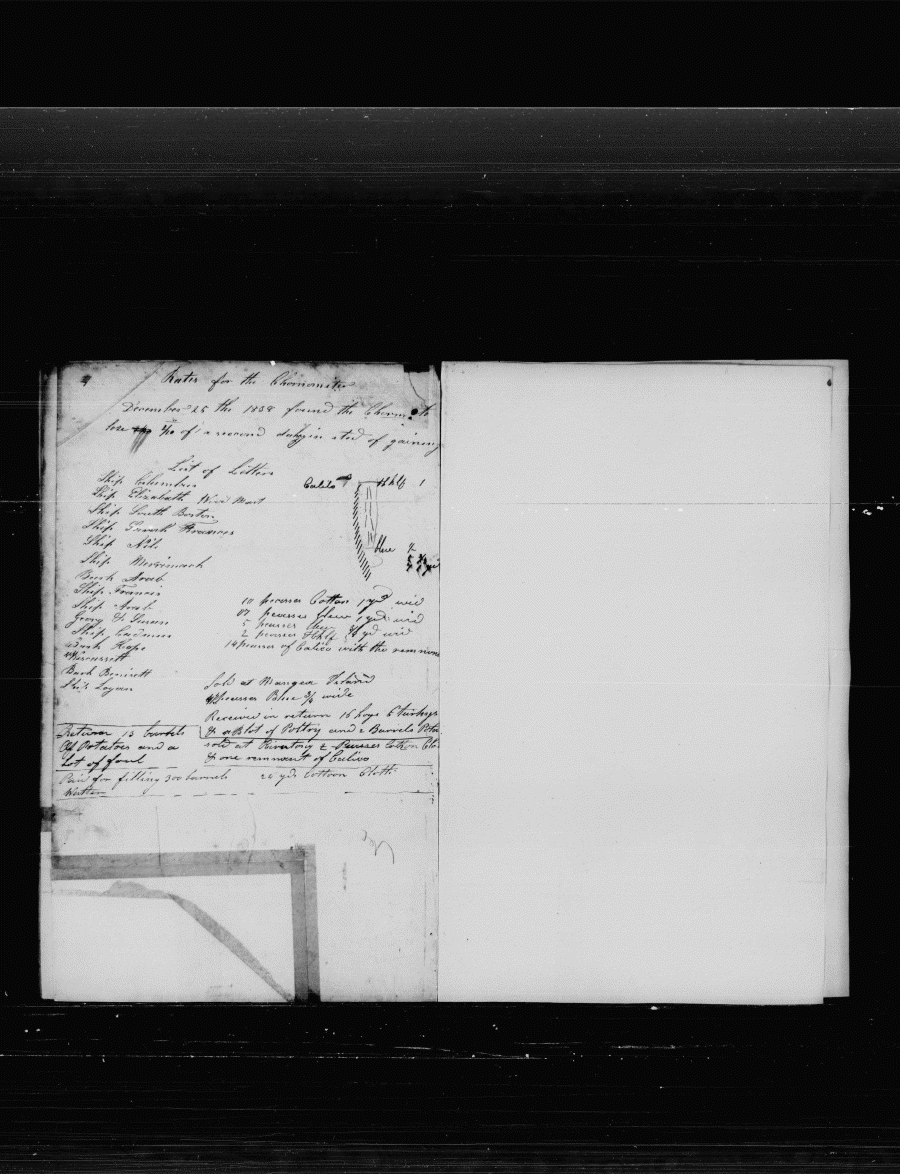 Rates for the Chronometer
December 25 the 1838 found the Chronom
lose 2/10 of a second daly in sted of gaining
List of Letters
Ship Columbus
Ship Elizabeth New
Ship South Boston
Ship Sarah Frances
Ship Nile
Ship Merrimack
Bark Arab
Ship Francis
Ship Arab
Georg & Susan
Ship Cadmus
Bark Hope
Wiscassett
Bark Bennett
Ship Logan
Calico
Half 1
blue
10 peasses Cotton 1 yd wid
peasses blew 1 yd wid
5 peasses
2 peasses Half 3/4 yd wid
14 peasses of Calico with the remnan
Sold at Mangea Island
peasses Blue 3/4 wide
Received in return 16 hogs 6 turkeys
& a lot of Poltry and 2 Barrels Pota
sold at 2 Peasses Cotton Clo
& one remnant of Calico
Return 13 barrels
Of Potatoes and a
Lot of fowl
Paid for filling 300 barrels 24 yds Cottoon Cloth
Watter